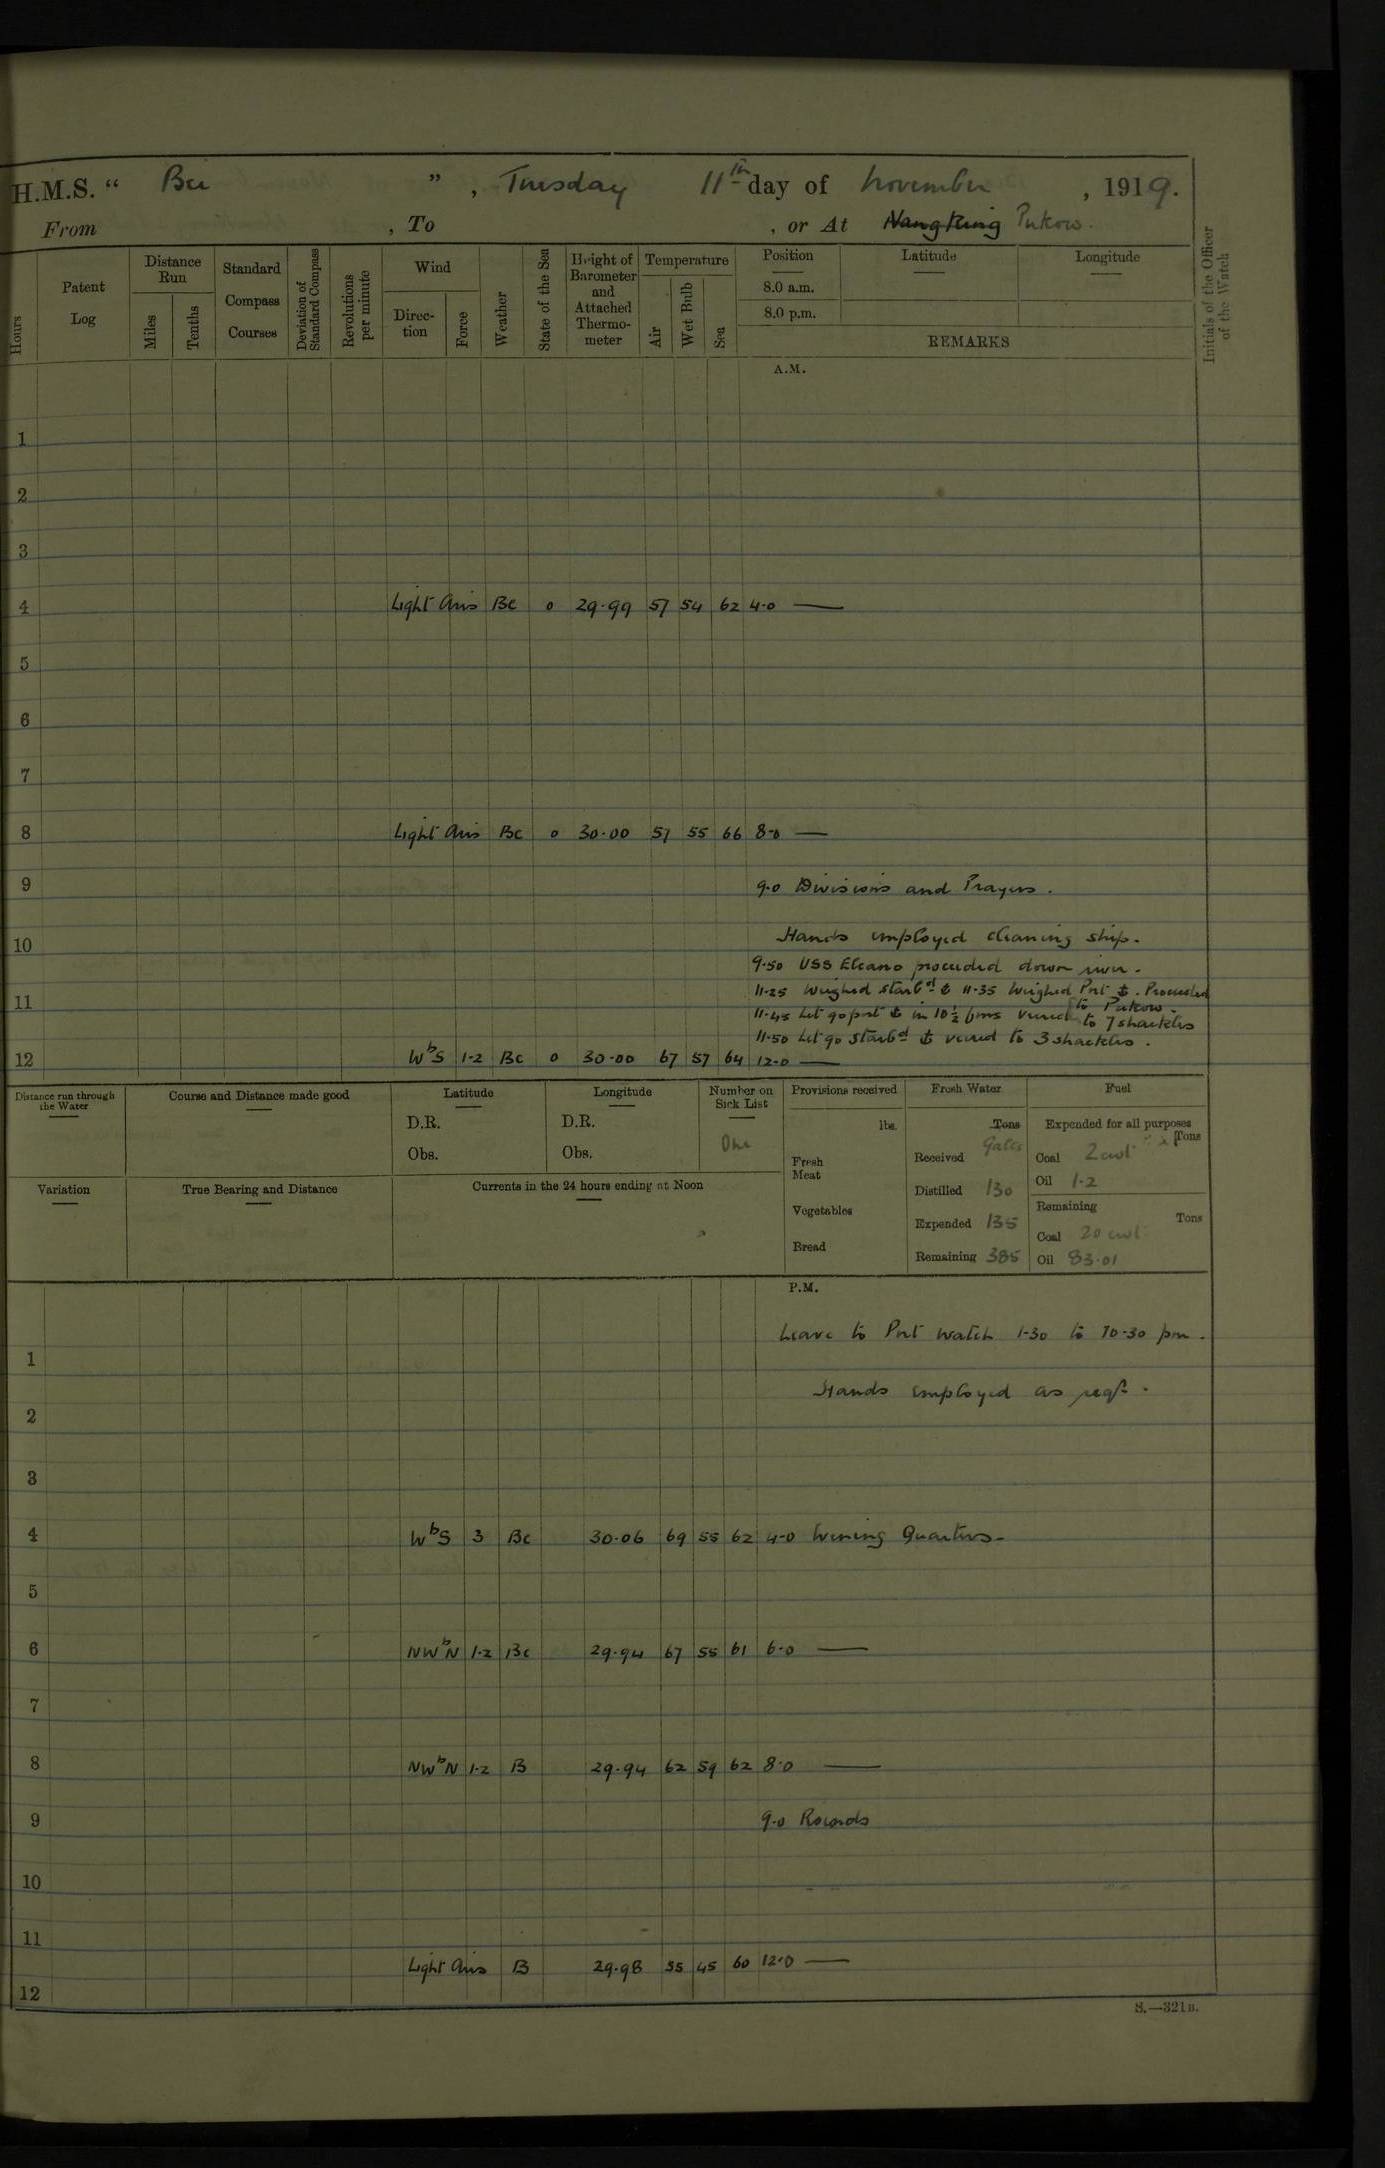 H.M.S. “ Bee ” , Tuesday 11th day of November , 1919.
From , To , or At Nangking Pukow.
Hours
Patent Log
Distance Run
Miles
Tenths
Standard Compass Courses
Deviation of Standard Compass
Revolutions per minute
Wind
Direction
Force
Weather
State of the Sea
Height of Barometer and Attached Thermometer
Temperature
Air
Wet Bulb
Sea
Position
8.0 a.m.
8.0 p.m.
Latitude
Longitude
REMARKS
Initials of the Officer of the Watch
A.M.
1
2
3
4 Light Airs Bc 0 29.99 57 54 62 4.0 —
5
6
7
8 Light Airs Bc 0 30.00 57 55 66 8.0 —
9 9.0 Divisions and Prayers.
10 Hands employed cleaning ship.
9.50 USS Elcano proceeded down river.
11 11.25 Weighed Starbd ⚓ 11.35 Weighed Port ⚓. Proceeded to Pukow.
11.45 Let go port ⚓ in 10½ fms veered to 7 shackles
11.50 Let go Starbd ⚓ veered to 3 shackles.
12 WbS 1-2 Bc 0 30.00 67 57 64 12.0 —
Distance run through the Water
Course and Distance made good
Latitude
D.R.
Obs.
Longitude
D.R.
Obs.
Number on Sick List
One
Provisions received
lbs.
Fresh Meat
Vegetables
Bread
Fresh Water
Tons Galls
Received
Distilled 130
Expended 135
Remaining 385
Fuel
Expended for all purposes
Tons
Coal 2 cwt
Oil 1.2
Remaining
Tons
Coal 20 cwt
Oil 83.01
Variation
True Bearing and Distance
Currents in the 24 hours ending at Noon
P.M.
Leave to Port Watch 1-30 to 10-30 pm.
1
Hands employed as reqd.
2
3
4 WbS 3 Bc 30.06 69 55 62 4-0 Evening Quarters.
5
6 NWbN 1-2 Bc 29.94 67 55 61 6.0 —
7
8 NWbN 1-2 B 29.94 62 59 62 8.0 —
9 9.0 Rounds
10
11
Light Airs B 29.98 55 45 60 12.0 —
12
S.—321B.